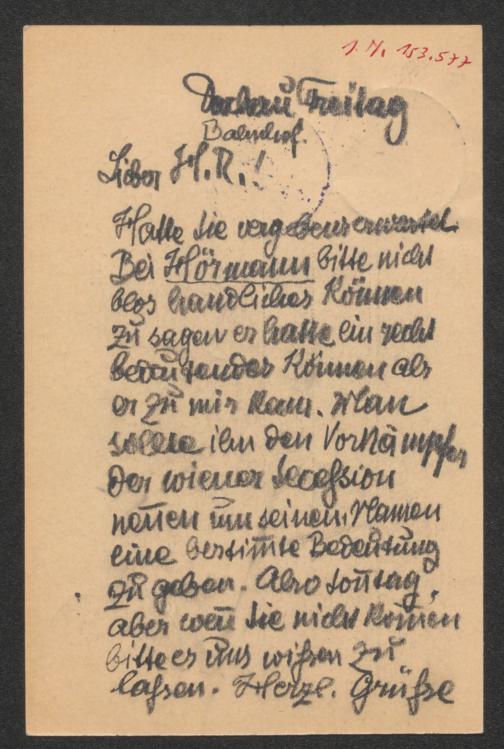 J.N. 153.577
Dachau Freitag
Bahnhof.
Lieber H.R.!
Hatte Sie vergebens erwartet.
Bei Hörmann bitte nicht
blos handliches Können
zu sagen er hatte ein recht
bedeutendes Können als
er zu mir kam. Man
sollte ihn den Vorkämpfer
der wiener Secession
nen̄en um seinem Namen
eine bestim̄te Bedeutung
zu geben. Also Son̄tag,
aber wen̄ Sie nicht kön̄en
bitte es uns wißen zu
laßen. Herzl. Grüße